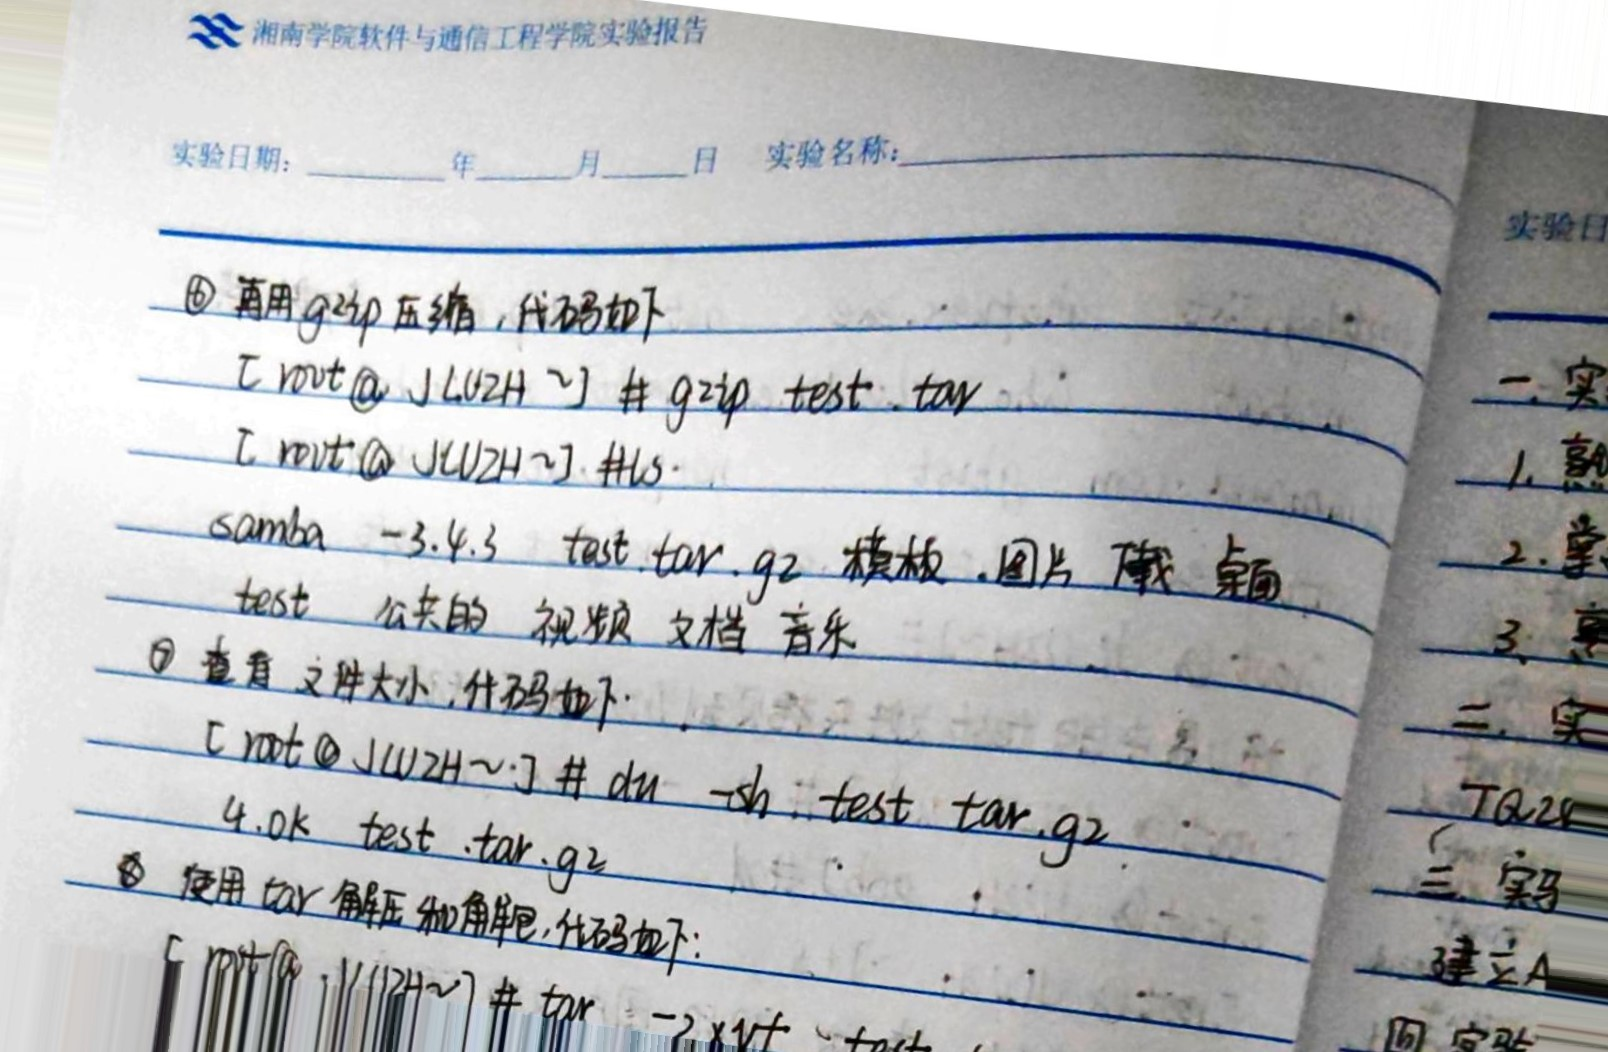 湘南学院软件与通信工程学院实验报告
实验日期: 年 月 日 实验名称:
⑥ 再用gzip压缩,代码如下
[root@JLUZH ~] # gzip test.tar
[root@JLUZH~] #ls.
samba -3.4.3 test.tar.gz 模板.图片 下载 桌面
test 公共的 视频 文档 音乐
⑦ 查看文件大小,代码如下.
[root@JLUZH~.] # du -sh test tar.gz
4.0K test.tar.gz
⑧ 使用tar解压和解包,代码如下:
[root@JLUZH~] # tar -zxvf test
实验日
一.实
1. 熟
2. 掌
3.
二. 实
三. 实验
建立A
四 实验